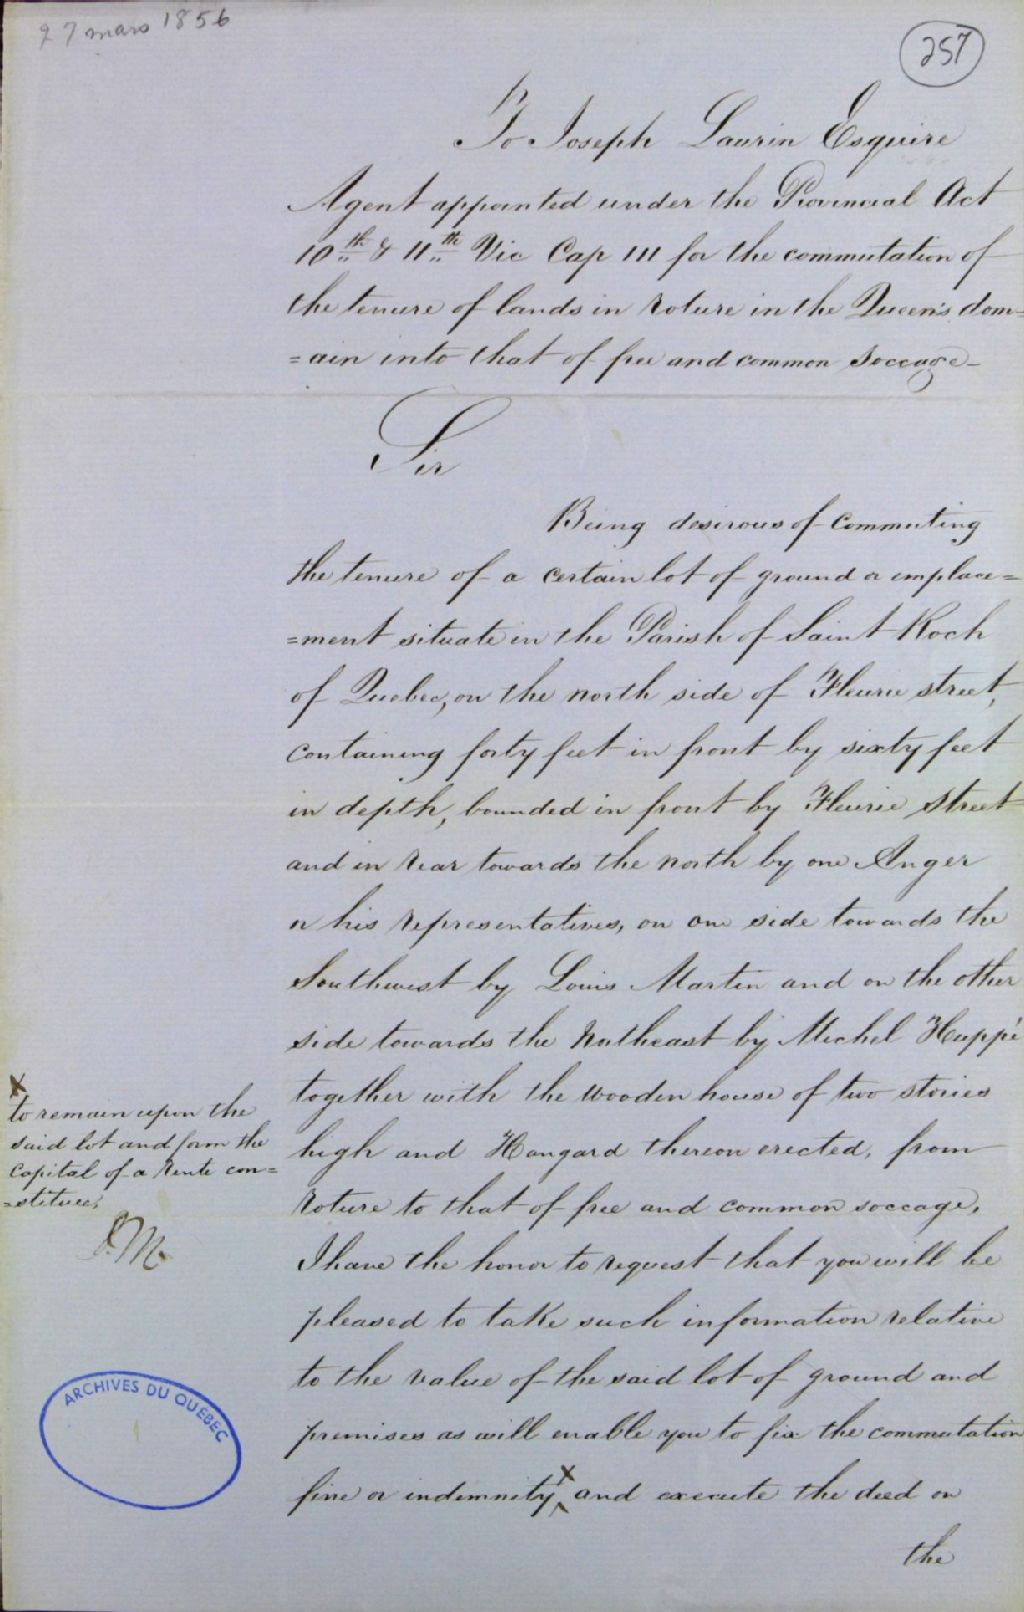 27 mars 1856
257
To Joseph Laurin Esquire
Agent appointed under the Provincial Act
10th & 11th Vic Cap 111 for the commutation of
the tenure of lands in roture in the Queen's dom=
=ain into that of free and common soccage-
Sir
Being desirous of commuting
the tenure of a certain lot of ground or emplace=
=ment situate in the Parish of Saint Roch
of Quebec, on the north side of Fleurie street,
containing forty feet in front by sixty feet
in depth, bounded in front by Fleurie Street
and in rear towards the north by one Anger
or his representatives, on one side towards the
Southwest by Louis Martin and on the other
side towards the Northeast by Michel Huppé
together with the wooden house of two stories
high and Hangard thereon erected, from
roture to that of free and common soccage,
I have the honor to request that you will be
pleased to take such information relative
to the value of the said lot of ground and
premises as will enable you to fix the commutation
fine or indemnity x and execute the deed on
the
x
to remain upon the
said lot and form the
Capital of a Rente con=
=stituée;
J.M.
ARCHIVES DU QUÉBEC